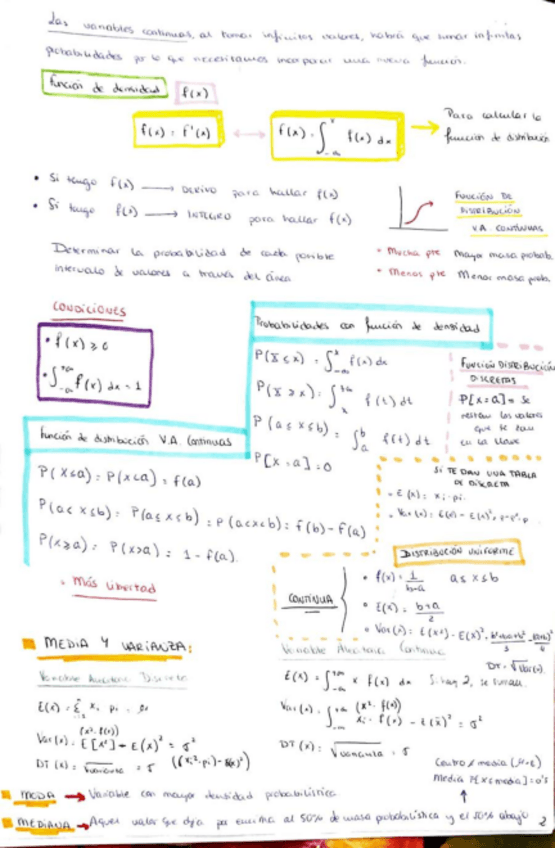 Las variables continuas, al tomar infinitos valores, habrá que sumar infinitas
probabilidades por lo que necesitamos incorporar una nueva función.
Función de densidad f(x)
f(x) = F'(x)
F(x) = ∫_{-∞}^{x} f(x) dx
Para calcular la
función de distribución
• Si tengo F(x) → DERIVO para hallar f(x)
• Si tengo f(x) → INTEGRO para hallar F(x)
FUNCIÓN DE
DISTRIBUCIÓN
V.A. CONTINUAS
Determinar la probabilidad de cada posible
intervalo de valores a través del área
• Mucha pte Mayor masa probab.
• Menos pte Menor masa prob.
CONDICIONES
• f(x) ≥ 0
• ∫_{-∞}^{+∞} f(x) dx = 1
Probabilidades con función de densidad
P(X ≤ x) = ∫_{-∞}^{x} f(x) dx
P(X ≥ x) = ∫_{x}^{+∞} f(t) dt
P(a ≤ X ≤ b) = ∫_{a}^{b} f(t) dt
P[X = a] = 0
FUNCIÓN DISTRIBUCIÓN
DISCRETAS
P[X = a] = se
restan los valores
que te dan
en la llave
Función de distribución V.A. Continuas
P(X ≤ a) = P(X < a) = F(a)
P(a < X ≤ b) = P(a ≤ X ≤ b) = P(a < X < b) = F(b) - F(a)
P(X ≥ a) = P(X > a) = 1 - F(a).
• Más libertad
SI TE DAN UNA TABLA
DE DISCRETA
• E(x) = xi · pi.
DISTRIBUCIÓN UNIFORME
CONTINUA
• f(x) = 1/(b-a) a ≤ x ≤ b
• E(x) = (b+a)/2
• Var(x) = E(x²) - E(x)²
DT = √Var(x)
MEDIA Y VARIANZA:
Variable Aleatoria Discreta
Var(x) = E[X²] - E(x)² = σ²
DT(x) = √varianza = σ
Variable Aleatoria Continua
E(x) = ∫_{-∞}^{+∞} x f(x) dx Si hay 2, se suman.
DT(x) = √varianza = σ
MODA → Variable con mayor densidad probabilística.
MEDIANA → Aquel valor que deja por encima al 50% de masa probabilística y el 50% abajo
2